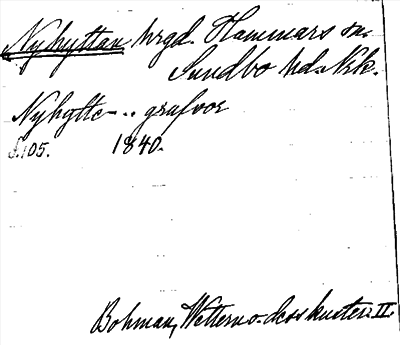 Nyhyttan hrgd. Hammars sn.
Sundbo hd. Nrk.
Nyhytte- .. grufvor
S.105. 1840.
Bohman, Wettern o. dess kuster. II.